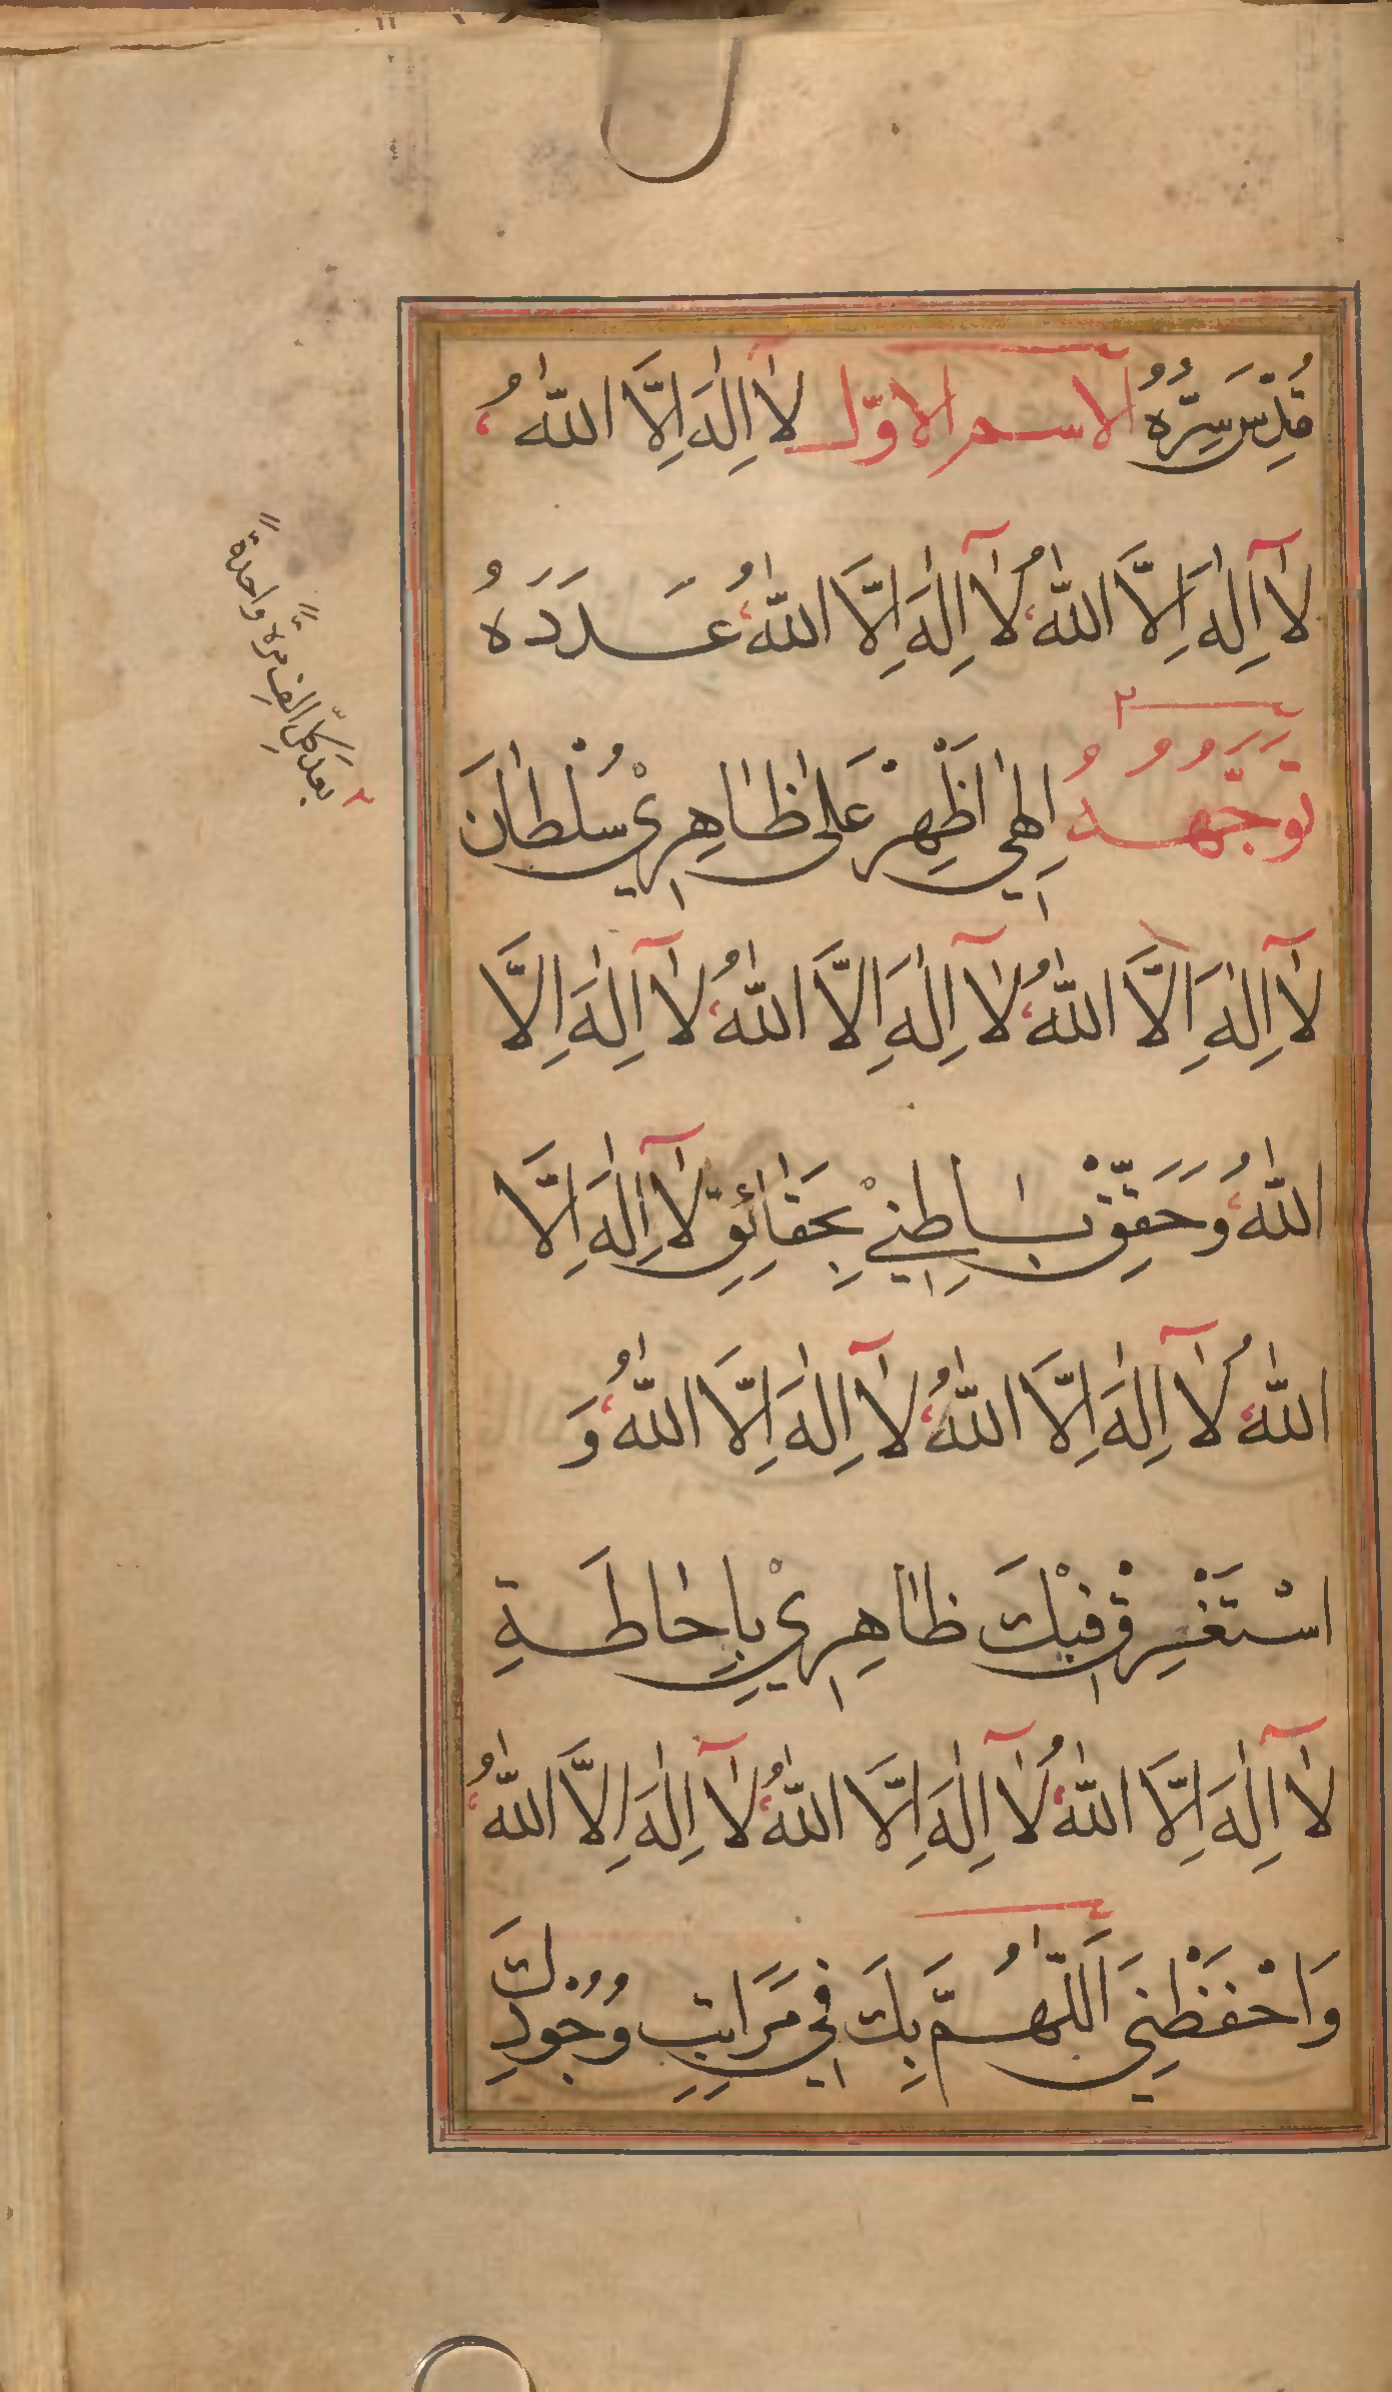 قُدِّسَ سِرُّهُ الاسم الاوّل لَا اِلٰهَ اِلَّا اللّٰهُ
لَآ اِلٰهَ اِلَّا اللّٰهُ لَآ اِلٰهَ اِلَّا اللّٰهُ عَدَدَهُ
٢
تَوَجُّهُهُ اِلٰهِي اَظْهِرْ عَلٰى ظَاهِرِيْ سُلْطَانَ
لَآ اِلٰهَ اِلَّا اللّٰهُ لَآ اِلٰهَ اِلَّا اللّٰهُ لَآ اِلٰهَ اِلَّا
اللّٰهُ وَحَقِّقْ بَاطِنِيْ بِحَقَائِقِ لَآ اِلٰهَ اِلَّا
اللّٰهُ لَآ اِلٰهَ اِلَّا اللّٰهُ لَآ اِلٰهَ اِلَّا اللّٰهُ وَ
اسْتَغْرِقْ فِيْكَ ظَاهِرِيْ بِاِحَاطَةِ
لَآ اِلٰهَ اِلَّا اللّٰهُ لَآ اِلٰهَ اِلَّا اللّٰهُ لَآ اِلٰهَ اِلَّا اللّٰهُ
وَاحْفَظْنِي اَللّٰهُمَّ بِكَ فِي مَرَاتِبِ وُجُوْدِكَ
٢ بعد كلّ الف مرّةً واحدةً